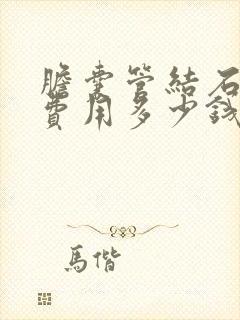 膽囊管結石
費用多少錢
馬偕